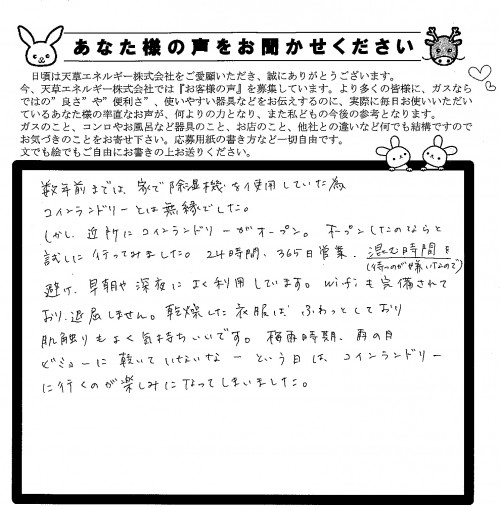 あなた様の声をお聞かせください
日頃は天草エネルギー株式会社をご愛顧いただき、誠にありがとうございます。
今、天草エネルギー株式会社では『お客様の声』を募集しています。より多くの皆様に、ガスなら
ではの”良さ”や”便利さ”、使いやすい器具などをお伝えするのに、実際に毎日お使いいただい
ているあなた様の率直なお声が、何よりの力となり、また私どもの今後の参考となります。
ガスのこと、コンロやお風呂など器具のこと、お店のこと、他社との違いなど何でも結構ですので
お気づきのことをお寄せ下さい。応募用紙の書き方など一切自由です。
文でも絵でもご自由にお書きの上お送りください。
数年前までは、家で除湿機を使用していた為
コインランドリーとは無縁でした。
しかし、近所にコインランドリーがオープン。オープンしたのならと
試しに行ってみました。24時間、365日営業、混む時間は
(待つのが嫌いなので)
避け、早朝や深夜によく利用しています。wifiも完備されて
おり、退屈しません。乾燥した衣服は、ふわっとしており
肌触りもよく気持ちいいです。梅雨時期、雨の日
に乾いていないなーという日は、コインランドリー
に行くのが楽しみになってしまいました。